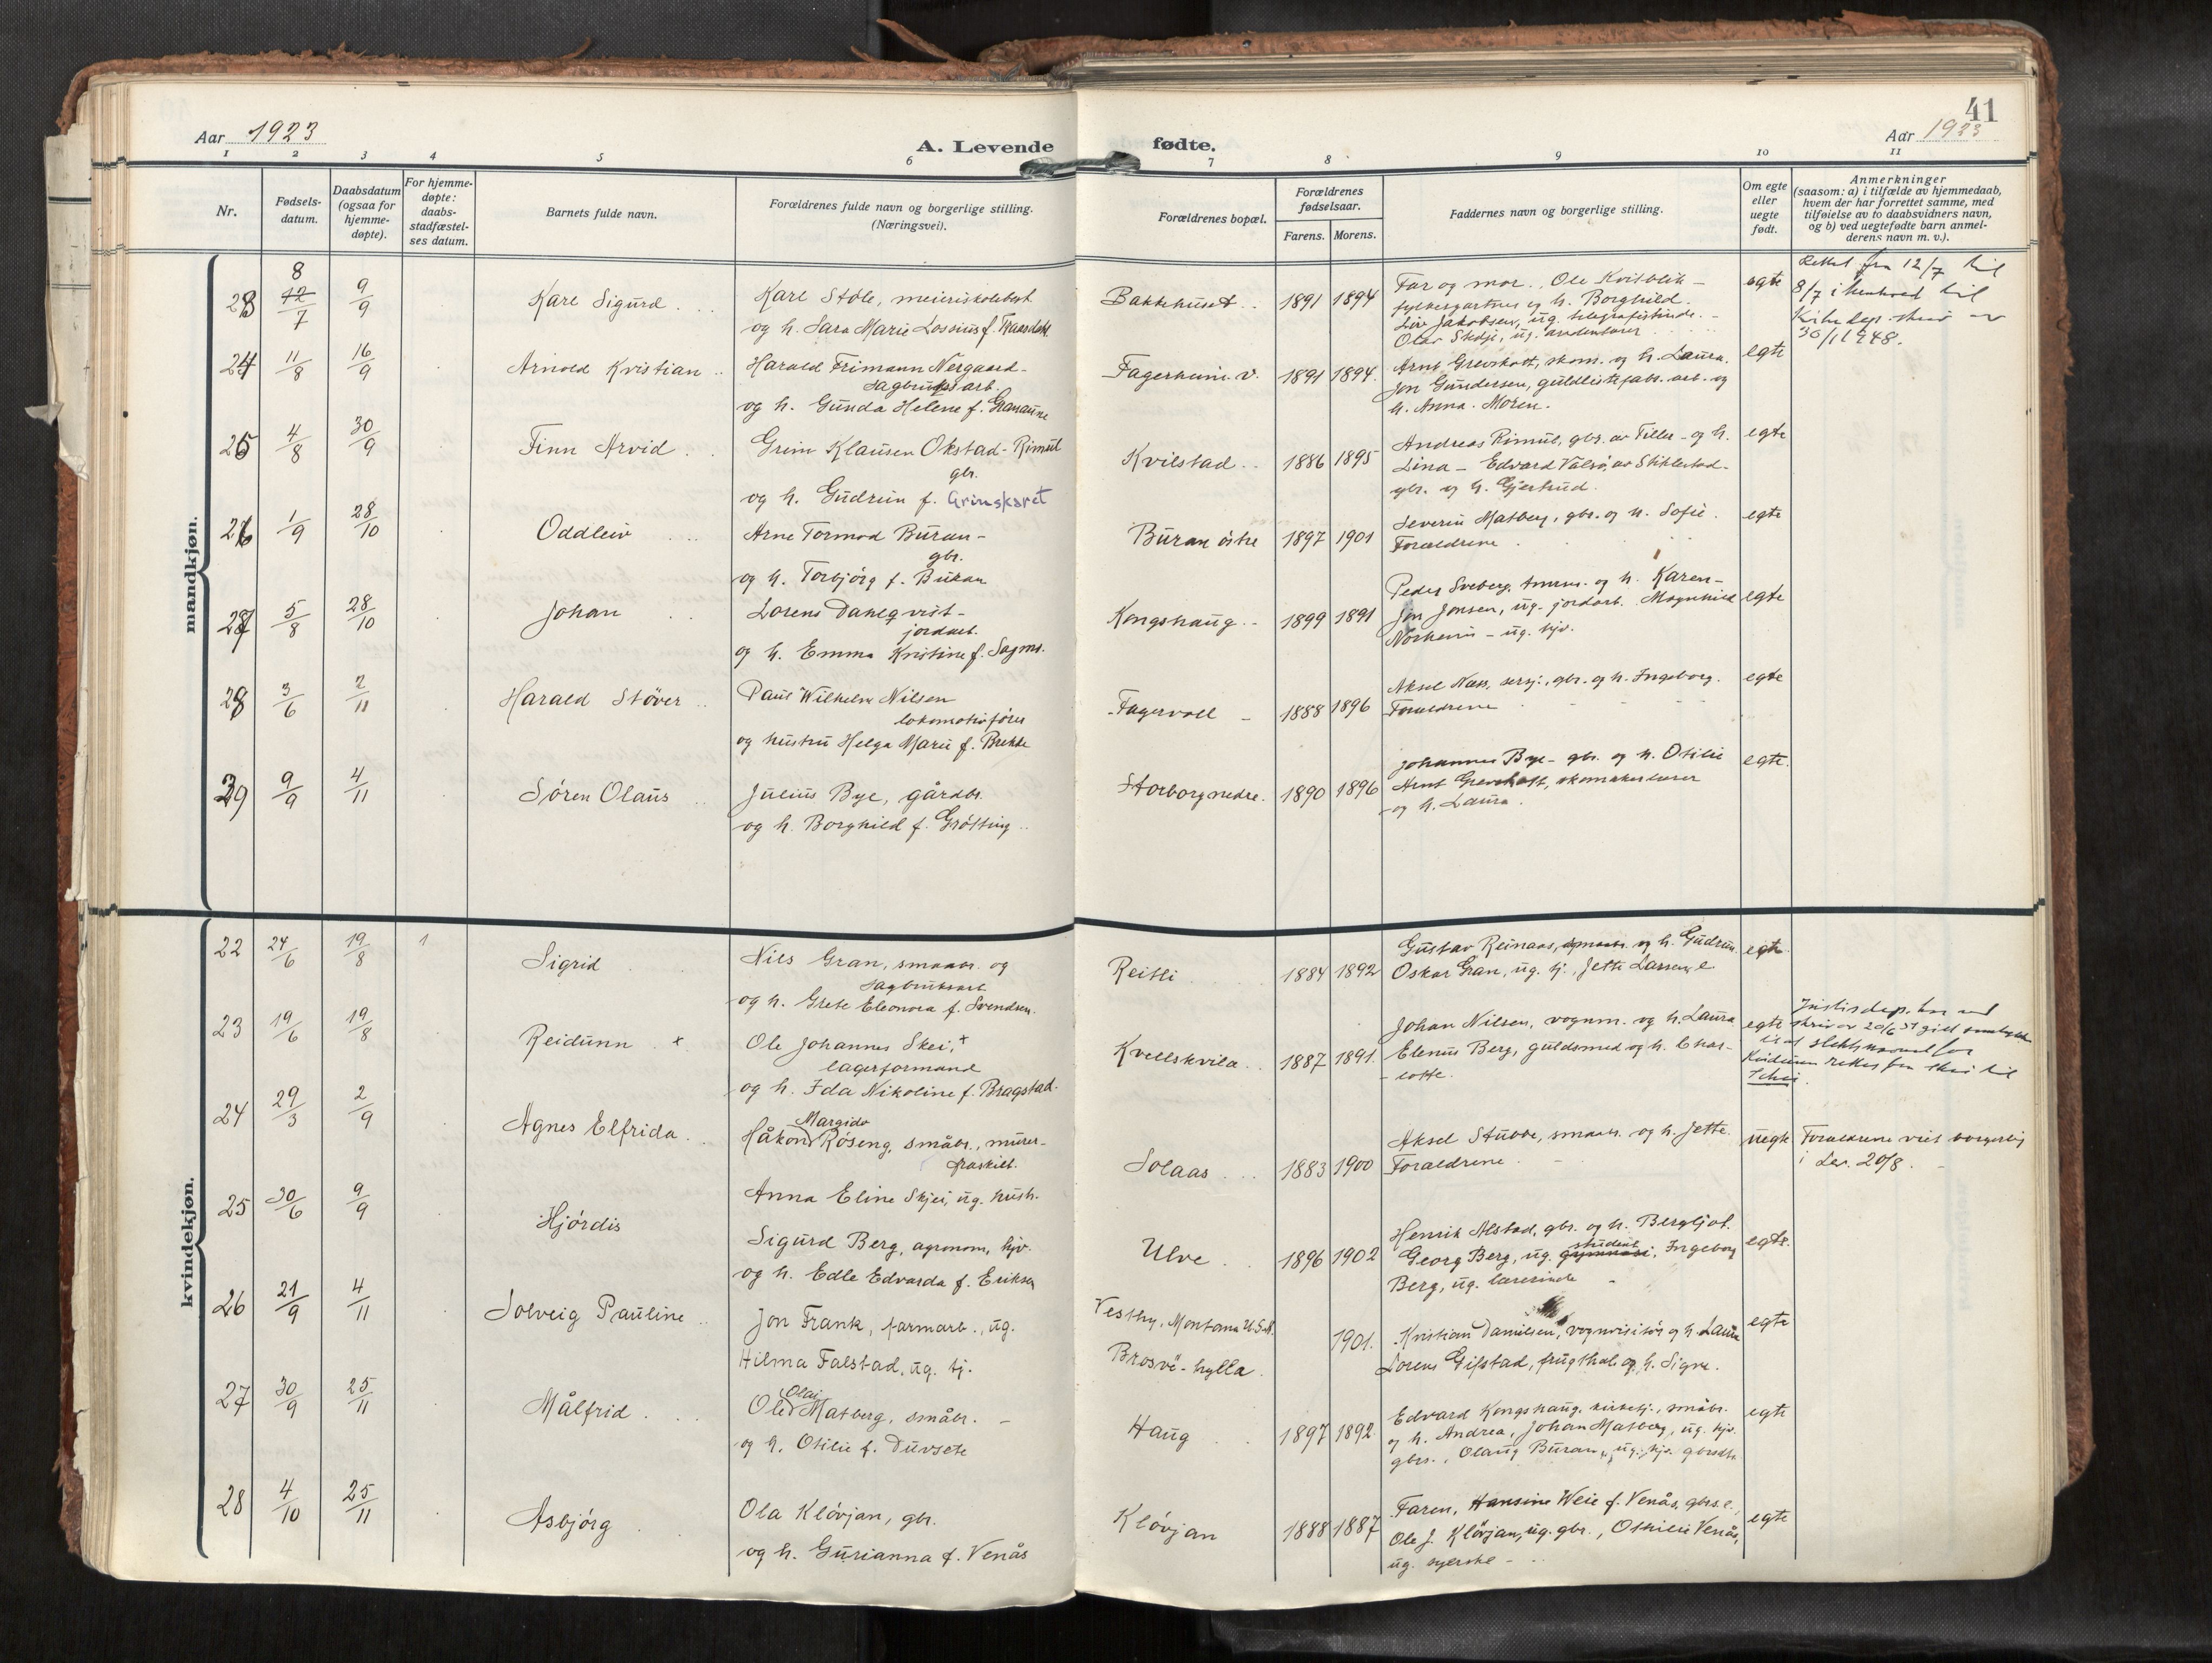 41
Aar 1923
A. Levende
fødte.
Aar 1923
1 2 3 4 5 6 7 8 9 10 11
Nr.
Fødsels-
datum.
Daabsdatum
(ogsaa for
hjemme-
døpte).
For hjemme-
døpte:
daabs-
stadfæstel-
ses datum.
Barnets fulde navn.
Forældrenes fulde navn og borgerlige stilling.
(Næringsvei).
Forældrenes bopæl.
Forældrenes
fødselsaar.
Farens. Morens.
Faddernes navn og borgerlige stilling.
Om egte
eller
uegte
født.
Anmerkninger
(saasom: a) i tilfælde av hjemmedaab,
hvem der har forrettet samme, med
tilføielse av to daabsvidners navn,
og b) ved uegtefødte barn anmel-
derens navn m. v.).
mandkjøn.
23 8 12/7 9/9 Karl Sigurd
Karl Støle, meieriskolebest.
og h. Sara Marie Lossius f.
Bakkehuset 1891 1894
Far og mor. Ole Kvisblik -
fylkesgartner og h. Borghild.
Liv Jakobsen, ug. telegrafistinde. -
Olav Skeje, ug.
egte
Rettet fra 12/7 til
8/7 i henhold til
Kirkedep. skriv av
30/1 1948.
24 11/8 16/9 Arnold Kristian
Harald Frimann Nergaard -
sagbruksarb.
og h. Gunda Helene f. Granaune
Fagerheim v. 1891 1894.
Arnt Grevskott, skom. og h. Laura.
Jon Gundersen, guldlistefabr. arb. og
h. Anna. Moren.
egte
25 4/8 30/9 Finn Arvid
Grim Klausen Okstad - Rimul
gbr.
og h. Gudrun f. Grinskaret
Kvilstad 1886 1895
Andreas Rimul, gbr. av Tiller - og h.
Lina - Edvard Valsø, av Stiklestad -
gbr. og h. Gjertrud.
egte
26 1/9 28/10 Oddleiv
Arne Tormod Buran -
gbr.
og h. Torbjörg f. Buran
Buran östre 1897 1901
Severin Matberg, gbr. og h. Sofie.
Forældrene
egte
27 5/8 28/10 Johan
Lorens Dahlqvist -
jordarb.
og h. Emma Kristine f. Sagmo.
Kongshaug - 1899 1891
Peder Sveberg, tmrm. og h. Karen -
Jon Jonsen, ug. jordarb. Magnhild
Norheim - ug. hjv.
egte
28 3/6 2/11 Harald Stöver
Paul Wilhelm Nilsen
lokomotivförer
og hustru Helga Marie f. Brekke
Fagervoll - 1888 1896
Aksel Næss, sersj., gbr. og h. Ingeborg.
Forældrene
egte
29 9/9 4/11 Sören Olaus
Julius Bye, gårdbr.
og h. Borghild f. Grötting
Storborg nedre. 1890 1896
Johannes Bye - gbr. og h. Otilie
Arnt Grevskott, skomakerlærer
og h. Laura.
egte.
kvindekjøn.
22 24/6 19/8 1 Sigrid
Nils Gran, smaabr. og
sagbruksarb.
og h. Grete Eleonora f. Svendsen.
Reitli 1884 1892
Gustav Reinaas, smaabr. og h. Gudrun.
Oskar Gran, ug. tj., Jette Larsen, e.
egte.
23 19/6 19/8 Reidunn x
Ole Johannes Skei, x
lagerformand
og h. Ida Nikoline f. Bragstad.
Kvellskvila 1887 1891.
Johan Nilsen, vognm. og h. Laura
Elenus Berg, guldsmed og h. Char-
- lotte.
egte
Justisdep. har ved
skriv av 20/6 51 gitt samtykke
til at slektsnavnet for
Reidunn rettes fra Skei til
Schei.
24 29/3 2/9 Agnes Elfrida
Margido
Håkon Röseng, småbr., murer -
fraskilt.
Anna Eline Skjei, ug. hush.
Solaas 1883 1900
Aksel Stubbe, smaabr. og h. Jette.
Forældrene
uegte
Forældrene viet borgerlig
i Lev. 20/8.
25 30/6 9/9 Hjördis
Sigurd Berg, agronom, hjv.
og h. Edle Edvarda f. Eriksen
Ulve 1896 1902
Henrik Alstad, gbr. og h. Bergljot.
student
Georg Berg, ug. gymnasi, Ingeborg
Berg, ug. lærerinde
egte.
26 21/9 4/11 Solveig Pauline
Jon Frank, farmarb., ug.
Hilma Falstad, ug. tj.
Vesthy, Montana U.S.A.
Brosvë - hylla 1901.
Kristian Danielsen, vognvisitör og h. Laura
Lorens Gifstad, frugthdl. og h. Signe.
egte
27 30/9 25/11 Målfrid
Olai
Ole Matberg, småbr. -
og h. Otilie f. Duvsete
Haug 1897 1892
Edvard Kongshaug, kirketj., småbr.
og h. Andrea, Johan Matberg, ug. hjv.
gbrs., Olaug Buran, ug. hjv. gbrdtr.
egte
28 4/10 25/11 Asbjörg
Ola Klövjan, gbr.
og h. Gurianna f. Venås
Klövjan 1888 1887
Faren, Hansine Weie f. Venås, gbrs. e.,
Ole J. Klövjan, ug. gbr., Othilie Venås,
ug. syerske -
egte